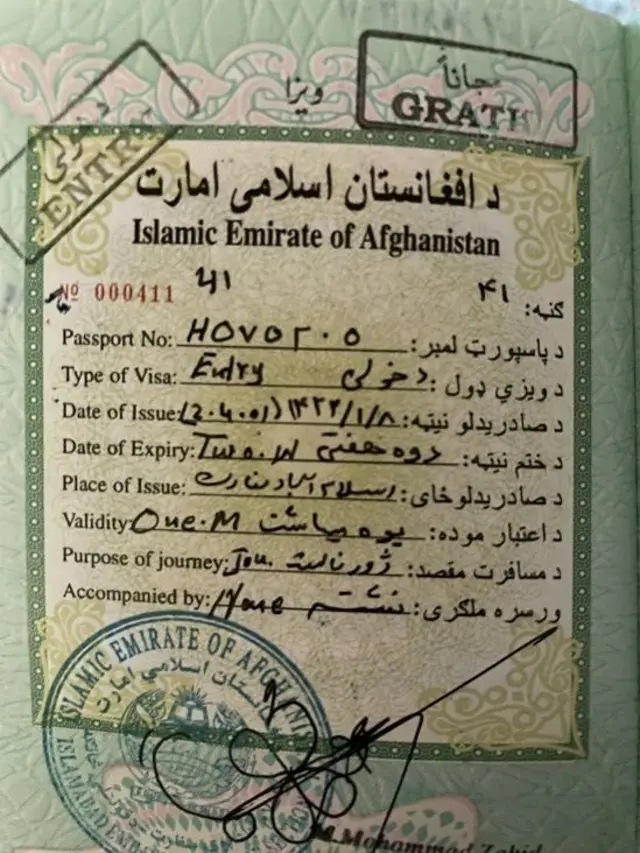 ویزا
مجاناً
GRATI
دخولی
ENTRY
د افغانستان اسلامی امارت
Islamic Emirate of Afghanistan
№ 000411 41 ۴۱ ګڼه:
Passport No: HOVOF۰۵ د پاسپورټ لمبر:
Type of Visa: Entry دخولی د ویزې ډول:
Date of Issue: (2.4.01) ۱۴۲۲/۱/۸ د صادریدلو نیټه:
Date of Expiry: Two.W دوه هفتې د ختم نیټه:
Place of Issue: اسلام آباد سفارت د صادریدلو ځای:
Validity One.M یوه میاشت د اعتبار موده:
Purpose of journey: Jou. ژورنالست د مسافرت مقصد:
Accompanied by: None نشته ورسره ملګري:
ISLAMIC EMIRATE OF AFGHANIS
ISLAMABAD EM
M.Mohammad Zahid